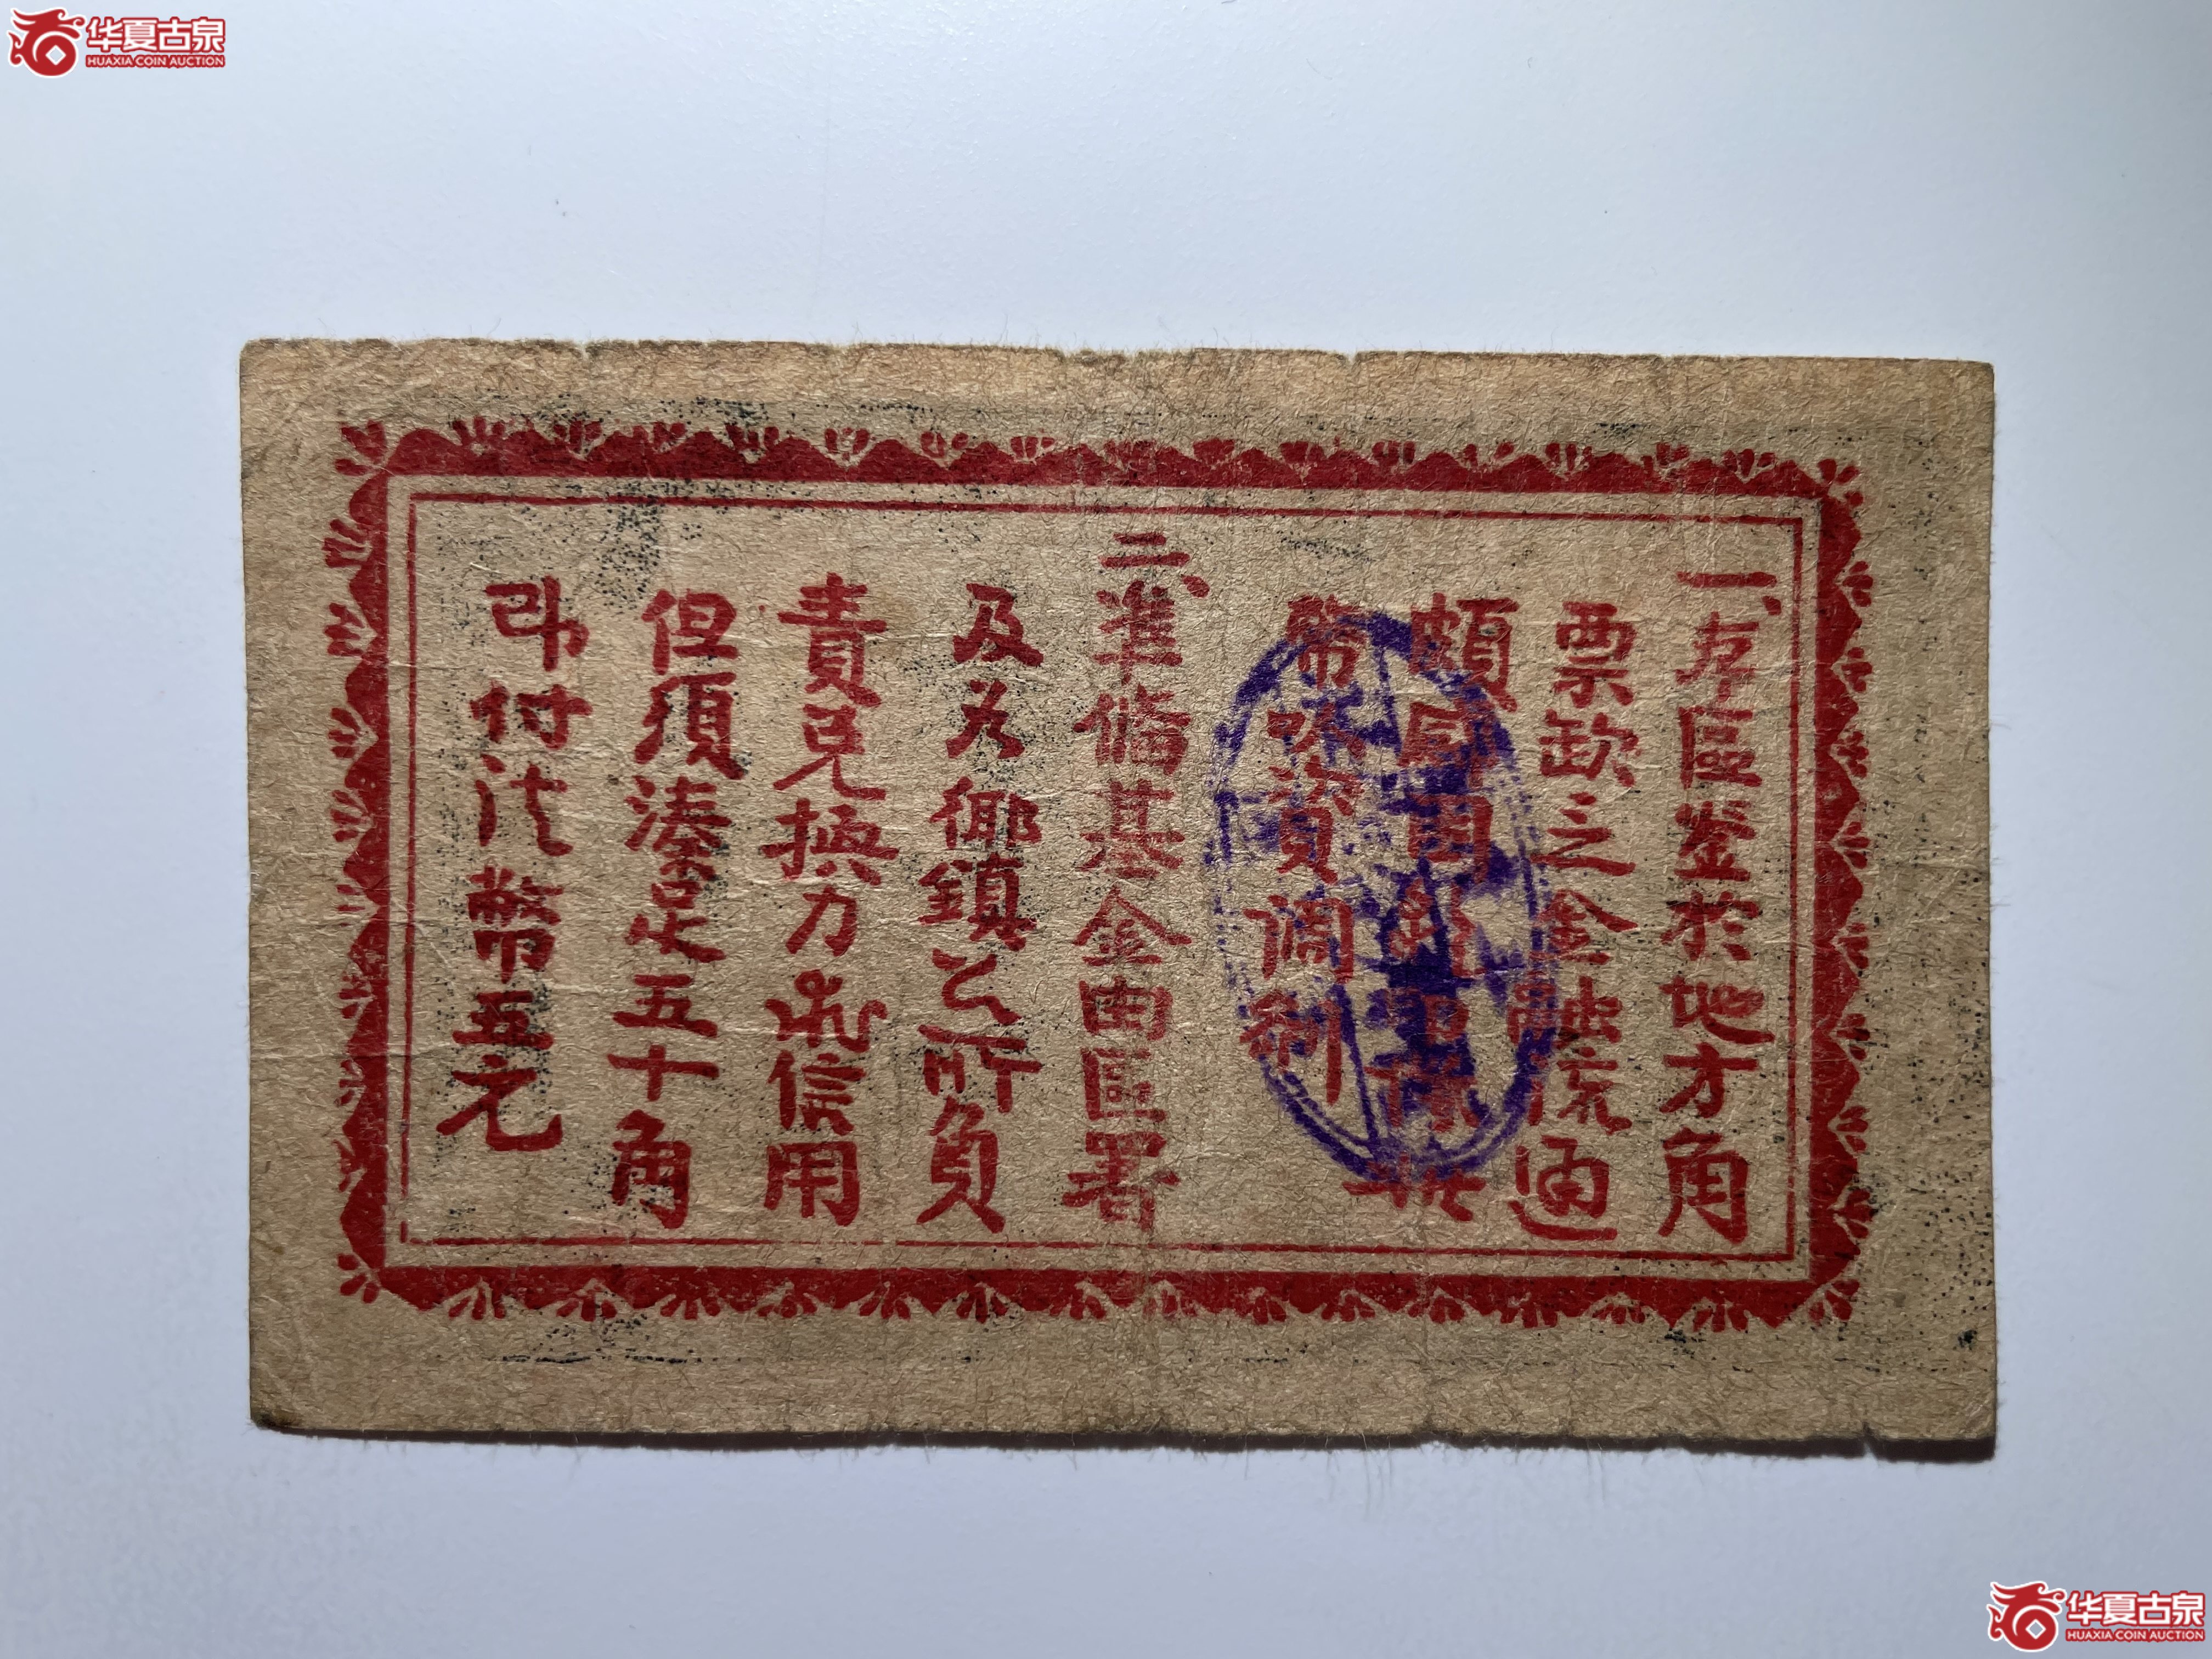 华夏古泉
HUAXIA COIN AUCTION
一、本區鉴於地方角
票缺乏金融流通
頗
幣以資調剂
二、準備基金由區署
及各鄉鎮公所負
責兑換力求信用
但須湊足五十角
即付法幣五元
华夏古泉
HUAXIA COIN AUCTION